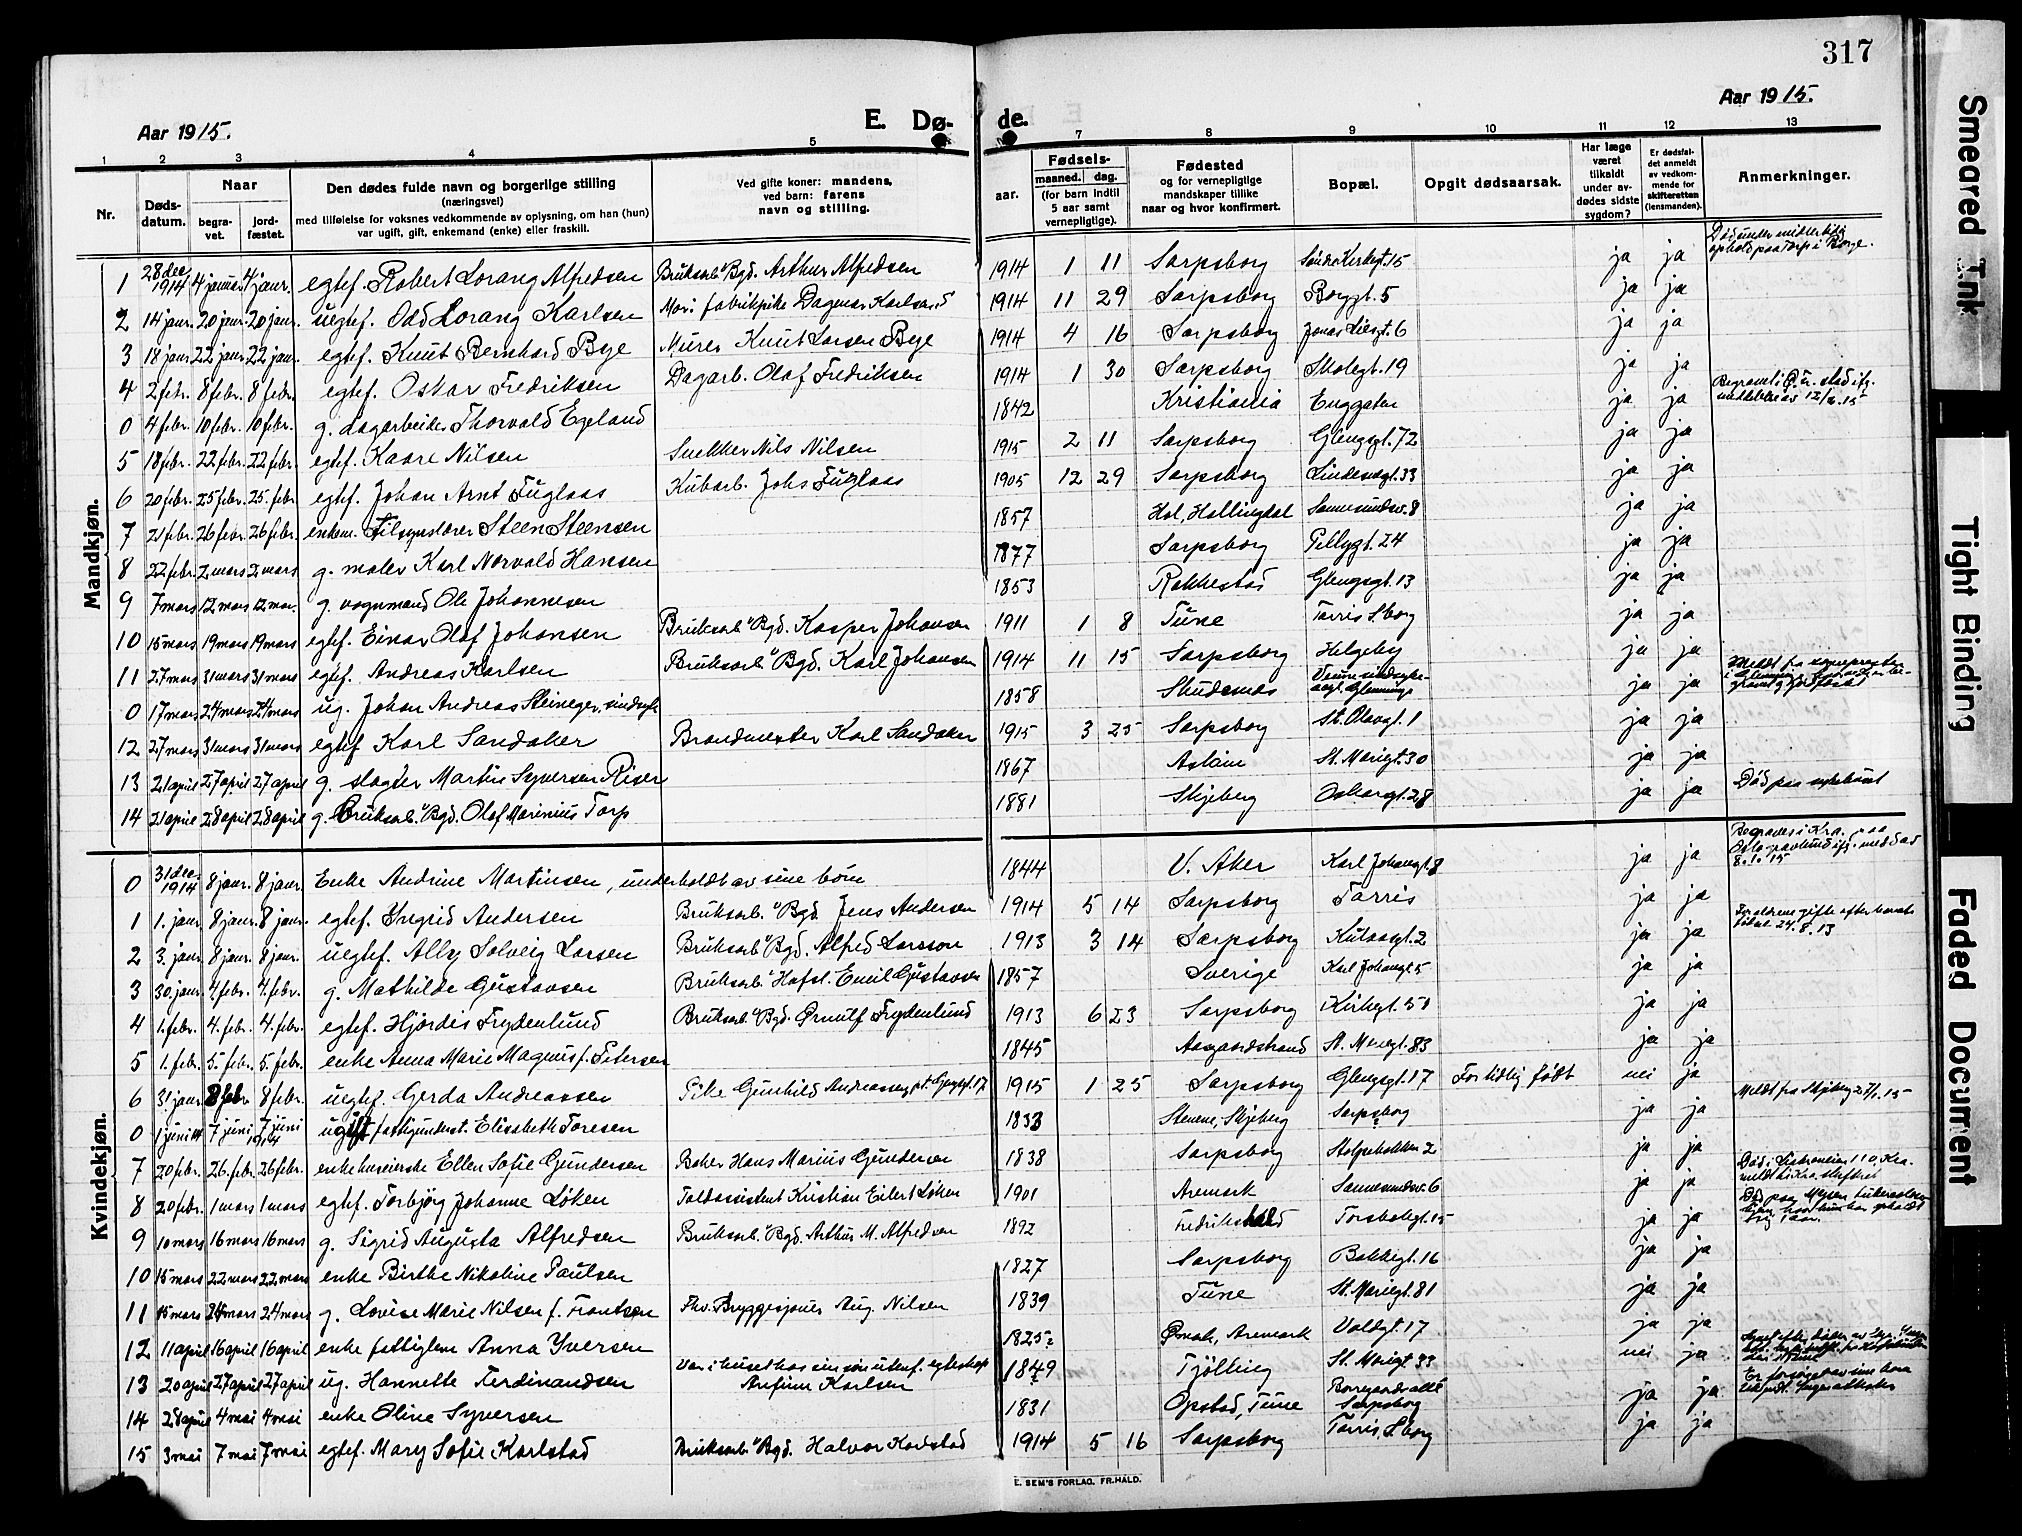 317
Aar 1915.
E. Dø-
de.
Aar 1915.
1 2 3 4 5 7 8 9 10 11 12 13
Nr.
Døds-
datum.
Naar
begra-
vet.
jord-
fæstet.
Den dødes fulde navn og borgerlige stilling
(næringsvei)
med tilføielse for voksnes vedkommende av oplysning, om han (hun)
var ugift, gift, enkemand (enke) eller fraskilt.
Ved gifte koner: mandens,
ved barn: farens
navn og stilling.
aar.
Fødsels-
maaned. dag.
(for barn indtil
5 aar samt
vernepligtige).
Fødested
og for vernepligtige
mandskaper tillike
naar og hvor konfirmert.
Bopæl.
Opgit dødsaarsak.
Har læge
været
tilkaldt
under av-
dødes sidste
sygdom?
Er dødsfal-
det anmeldt
av vedkom-
mende for
skifteretten
(lensmanden).
Anmerkninger.
Mandkjøn.
1 28 dec. 1914 4 januar 4 janr. egtef. Robert Lorang Alfredsen Bruksarb. v/Bgd. Arthur Alfredsen 1914 1 11 Sarpsborg Søndre Kirkegt. 15 ja ja Død under midlertidig ophold paa Torp i Borge.
2 14 janr. 20 janr. 20 janr. uegtef. Odd Lorang Karlsen Mor: fabrikpike Dagmar Karlsen 1914 11 29 Sarpsborg Borggt. 5 ja ja
3 18 janr 22 janr 22 janr. egtef. Knut Bernhard Bye Murer Knut Larsen Bye 1914 4 16 Sarpsborg Jonas Liesgt. 6 ja ja
4 2 febr. 8 febr. 8 febr. egtef. Oskar Fredriksen Dagarb. Olaf Fredriksen 1914 1 30 Sarpsborg Skolegt. 19 ja ja
0 4 febr. 10 febr. 10 febr. g. dagarbeider Thorvald Egeland 1842 Kristiania Enggaten ja ja
5 18 febr. 22 febr. 22 febr. egtef. Kaare Nilsen Snekker Nils Nilsen 1915 2 11 Sarpsborg Glengsgt. 72 ja ja
6 20 febr. 25 febr. 25. febr egtef. Johan Arnt Fuglaas Kubarb. Johs Fuglaas 1905 12 29 Sarpsborg Lindesogt. 33 ja ja
7 21 febr. 26 febr. 26 febr. enkem. Tilsynsfører Steen Steensen 1857 Hol, Hallingdal Sannesundsv. 8 ja ja
8 22 febr. 2 mars 2 mars g. maler Karl Norvald Hansen 1877 Sarpsborg Pellygt. 24 ja ja
9 7 mars 12 mars 12 mar. g. vognmand Ole Johannesen 1853 Rakkestad Glengsgt. 13 ja ja
10 15 mars 19 mars 19 mars egtef. Einar Olaf Johansen Bruksarb. v/Bgd. Kasper Johansen 1911 1 8 Tune Tarris S.borg ja ja
11 27 mars 31 mars 31 mars egtef. Andreas Karlsen Bruksarb. v/Bgd. Karl Johansen 1914 11 15 Sarpsborg Helgeby ja ja
0 17 mars 24 mars 24 mars ug. Johan Andreas Steineger, sindssyk 1858 Skudesnæs ja ja
12 27 mars 31 mars 31 mars egtef Karl Sandaker Brandmester Karl Sandaker 1915 3 25 Sarpsborg St. Olavgt. 1 ja ja
13 21 april 27 april 27 april g. slagter Martin Syversen Riser 1867 St. Mariegt. 30 ja ja
14 21 april 28 april 28 april g. Bruksarb. v/Bgd. Olaf Marinius Torp 1881 Skjeberg Oskarsgt. 28 ja ja Død paa sykehuset
Kvindekjøn.
0 31 dec. 1914 8 janr. 8 janr Enke Andrine Martinsen, underholdt av sine børn 1844 V. Aker Karl Johansgt. 8 ja ja
1 1. janr 8 janr. 8 janr. egtef. Yngrid Andersen Bruksarb. v/Bgd. Jens Andersen 1914 5 14 Sarpsborg Tarris ja ja
2 3. janr 8 janr. 8 janr. uegtef. Ally Solveig Larsen Bruksarb v/Bgd. Alfred Larsson 1913 3 14 Sarpsborg Kulaasgt. 2 ja ja Forældrene gifte efter barnets fødsel 24. 8. 13
3 30. janr 4. febr. 4. febr. g. Mathilde Gustavsen Bruksarb. v/Hafsl. Emil Gustavsen 1857 Sverige Karl Johansgt. 5 ja ja
4 1. febr. 4. febr. 4. febr. egtef. Hjördis Frydenlund Bruksarb. v/Bgd. Ørnulf Frydenlund 1913 6 23 Sarpsborg Kirkegt. 50 ja ja
5 1. febr. 5. febr. 5. febr. enke Anna Marie Magnus f. Petersen 1845 Aasgaardstrand St. Mariegt. 83 ja ja
6 31. janr 8 febr 8 febr. uegtef. Gerda Andreassen Pike Gunhild Andreassen, pt. Glengsgt. 17 1915 1 25 Sarpsborg Glengsgt. 17 For tidlig født nei ja
0 1 juni 14 7 juni 7 juni 1914 ugift fattigunderst. Elisabeth Toresen 1833 Stenene, Skjeberg Sarpsborg ja ja Meldt fra Skjeberg 27/1. 15
7 20 febr. 26. febr. 26 febr. enke huseierske Ellen Sofie Gundersen Baker Hans Marius Gundersen 1838 Sarpsborg Stolpebakken 2 ja ja
8 20 febr. 1 mars 1 mars egtef. Torbjörg Johanne Løken Toldassistent Kristian Eilert Løken 1901 Aremark Sannesundsv. 6 ja ja
9 10 mars 16 mars 16 mars g. Sigrid Augusta Alfredsen Bruksarb. v/Bgd. Arthur M. Alfredsen 1892 Fredrikshald Torsbekgt. 15 ja ja
10 15 mars 22 mars 22 mars enke Birthe Nikoline Paulsen 1827 Sarpsborg Bakkegt. 16 ja ja
11 15 mars 24 mars 24 mars g. Lovise Marie Nilsen f. Frantsen Fhv. Bryggesjouer Aug. Nilsen 1839 Tune St. Mariegt. 81 ja ja
12 11 april 16 april 16 april enke fattiglem Anna Yversen 1825? Aremark Voldgt. 17 ja ja
13 20 april 27 april 27 april ug. Hannette Ferdinandsen Var i huset hos sin søn utenf. egteskap Anfinn Karlsen 1849 Tjølling St. Mariegt 33 nei ja
14 28 april 4 mai 4 mai enke Oline Syversen 1831 Opstad, Tune Borregaards allé Sarpsborg ja ja
15 3 mai 7 mai 7 mai egtef. Mary Sofie Karlstad Bruksarb. v/Bgd. Halvor Karlstad 1914 5 16 Sarpsborg Tarris, S.borg ja ja
E. SEM'S FORLAG. FR.HALD.
Smeared Ink
Tight Binding
Faded Document